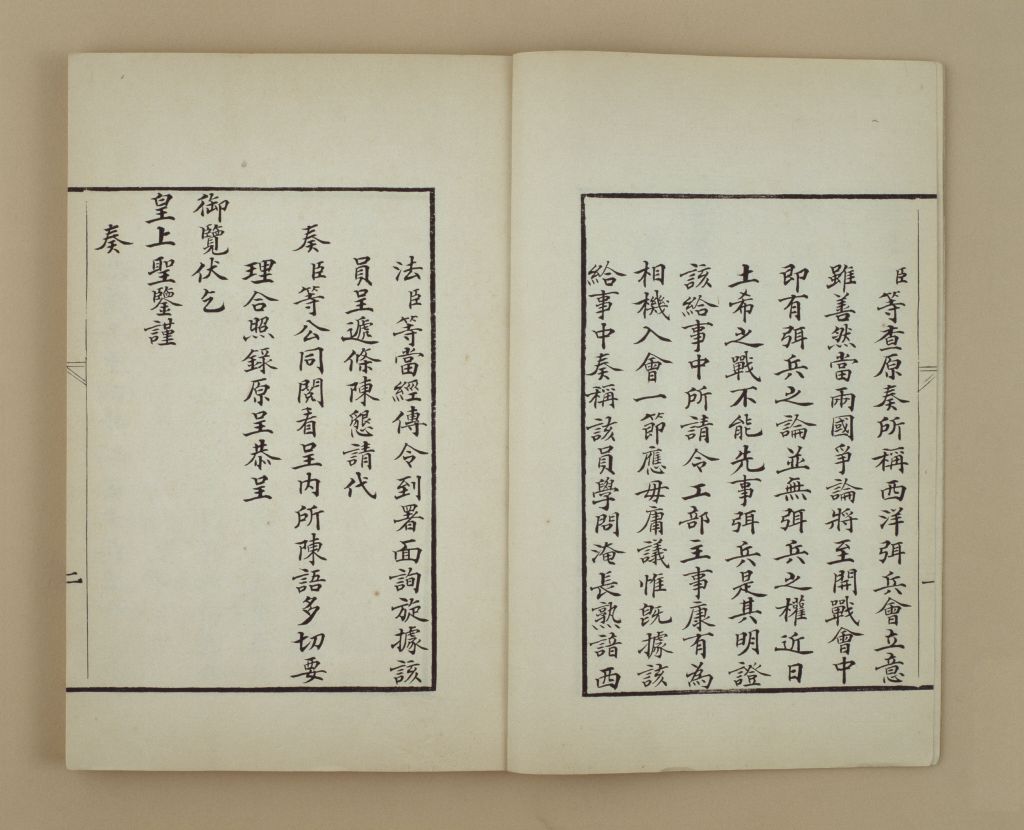 臣等查原奏所稱西洋弭兵會立意
雖善然當兩國爭論將至開戰會中
即有弭兵之論並無弭兵之權近日
土希之戰不能先事弭兵是其明證
該給事中所請令工部主事康有為
相機入會一節應毋庸議惟既據該
給事中奏稱該員學問淹長熟諳西
一
法臣等當經傳令到署面詢旋據該
員呈遞條陳懇請代
奏臣等公同閱看呈內所陳語多切要
理合照錄原呈恭呈
御覽伏乞
皇上聖鑒謹
奏
二